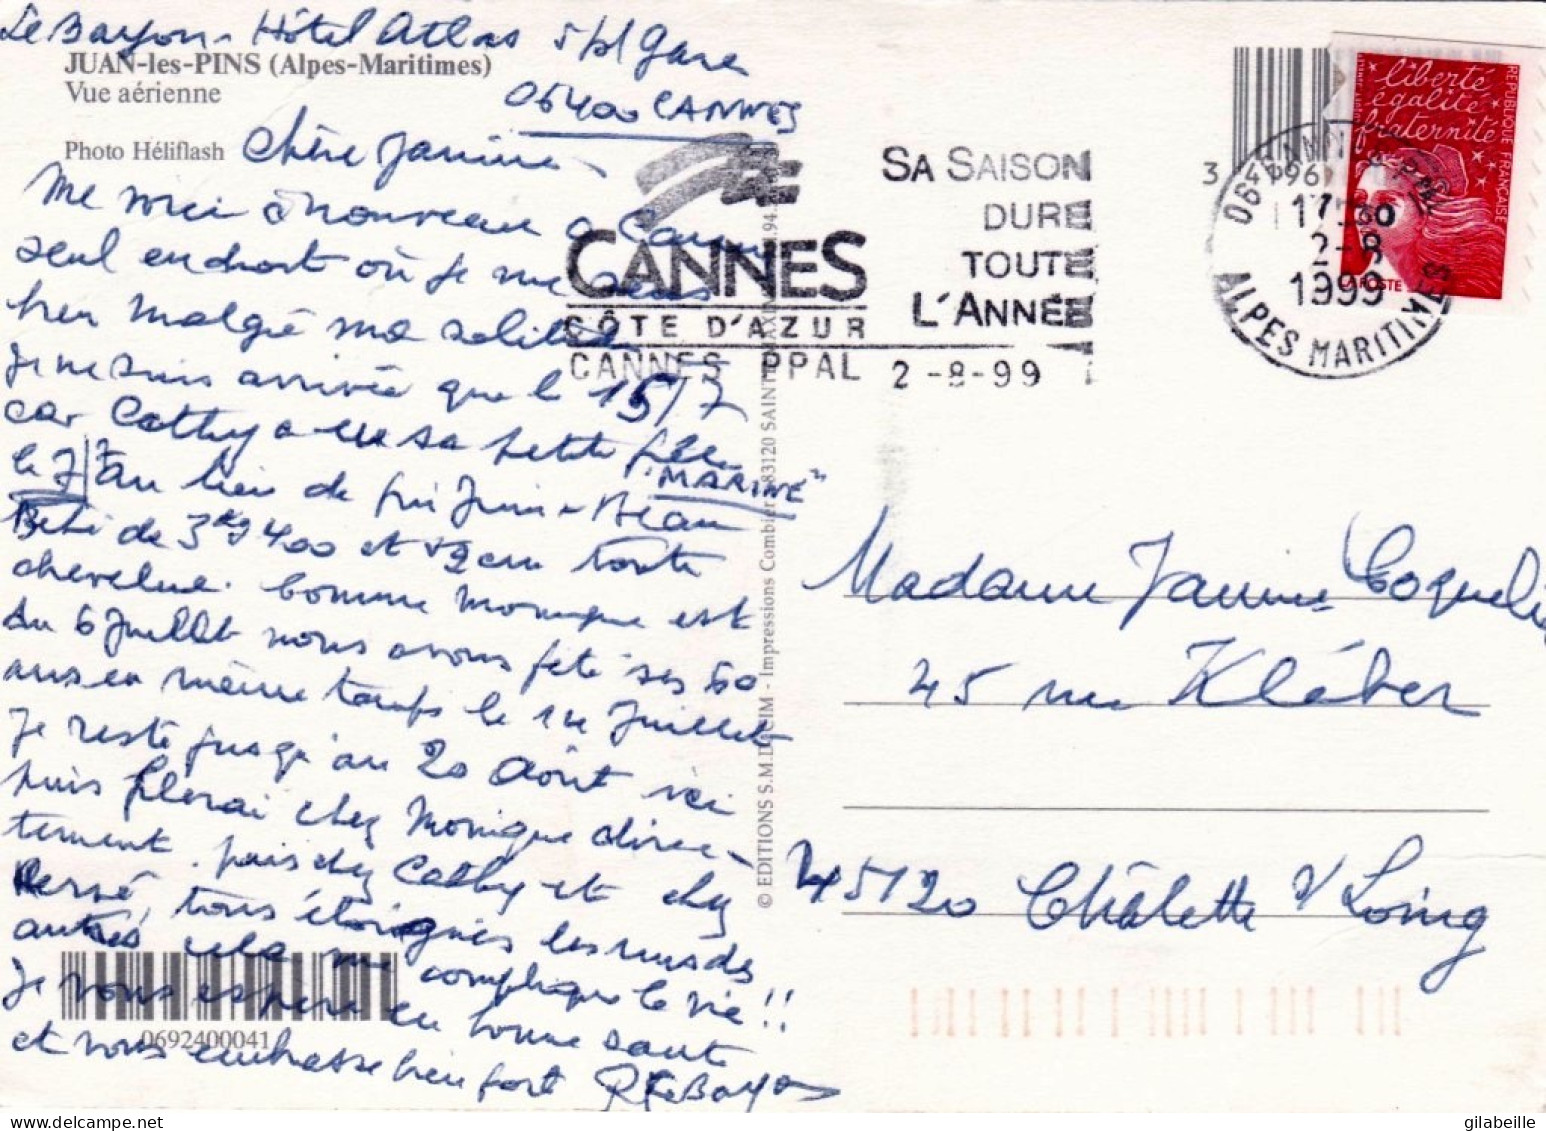 Le Bayon - Hôtel Atlas 5 pl Gare
06400 CANNES
JUAN-les-PINS (Alpes-Maritimes)
Vue aérienne
Photo Héliflash
Chère Janine
Me voici à nouveau a Cannes
seul endroit où je me sens
bien malgré ma solitude
Je ne suis arrivée que le 15/7
car Cathy a eu sa petite fille
"MARINE"
le 7/7 au lieu de fin Juin - Beau
Bébé de 3kg400 et 52 cm toute
chevelue. Comme Monique est
du 6 Juillet nous avons fêté ses 60
ans en même temps le 11 Juillet
Je reste jusqu'au 20 Août ici
puis filerai chez Monique direc-
tement. puis chez Cathy et chez
Hervé, tous éloignés les uns des
autres cela me complique la vie!!
Je vous espère en bonne santé
et vous embrasse bien fort R Le Bayon
0692400041
© EDITIONS S.M.D. - Impressions Combier 83120 SAINTE
CANNES
CÔTE D'AZUR
SA SAISON
DURE
TOUTE
L'ANNÉE
CANNES PPAL 2-8-99
17 30
2-8
1999
ALPES MARITIMES
liberté
égalité
fraternité
REPUBLIQUE FRANÇAISE
LA POSTE
Madame Janine Coquelin
45 rue Kléber
45120 Châlette s/ Loing
gilabeille